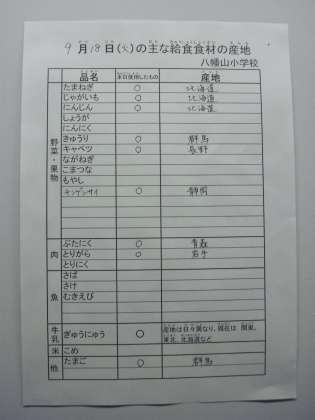 9月18日(火)の主な給食食材の産地
八幡山小学校
品名 本日使用したもの 産地
野菜・果物
たまねぎ ○ 北海道
じゃがいも ○ 北海道
にんじん ○ 北海道
しょうが
にんにく
きゅうり ○ 群馬
キャベツ ○ 長野
ながねぎ
こまつな
もやし
チンゲンサイ ○ 静岡
肉
ぶたにく ○ 青森
とりがら ○ 岩手
とりにく
魚
さば
さけ
むきえび
牛乳 ぎゅうにゅう ○ 産地は日々異なり、現在は 関東、
東北、北海道など
米 こめ
他 たまご ○ 群馬